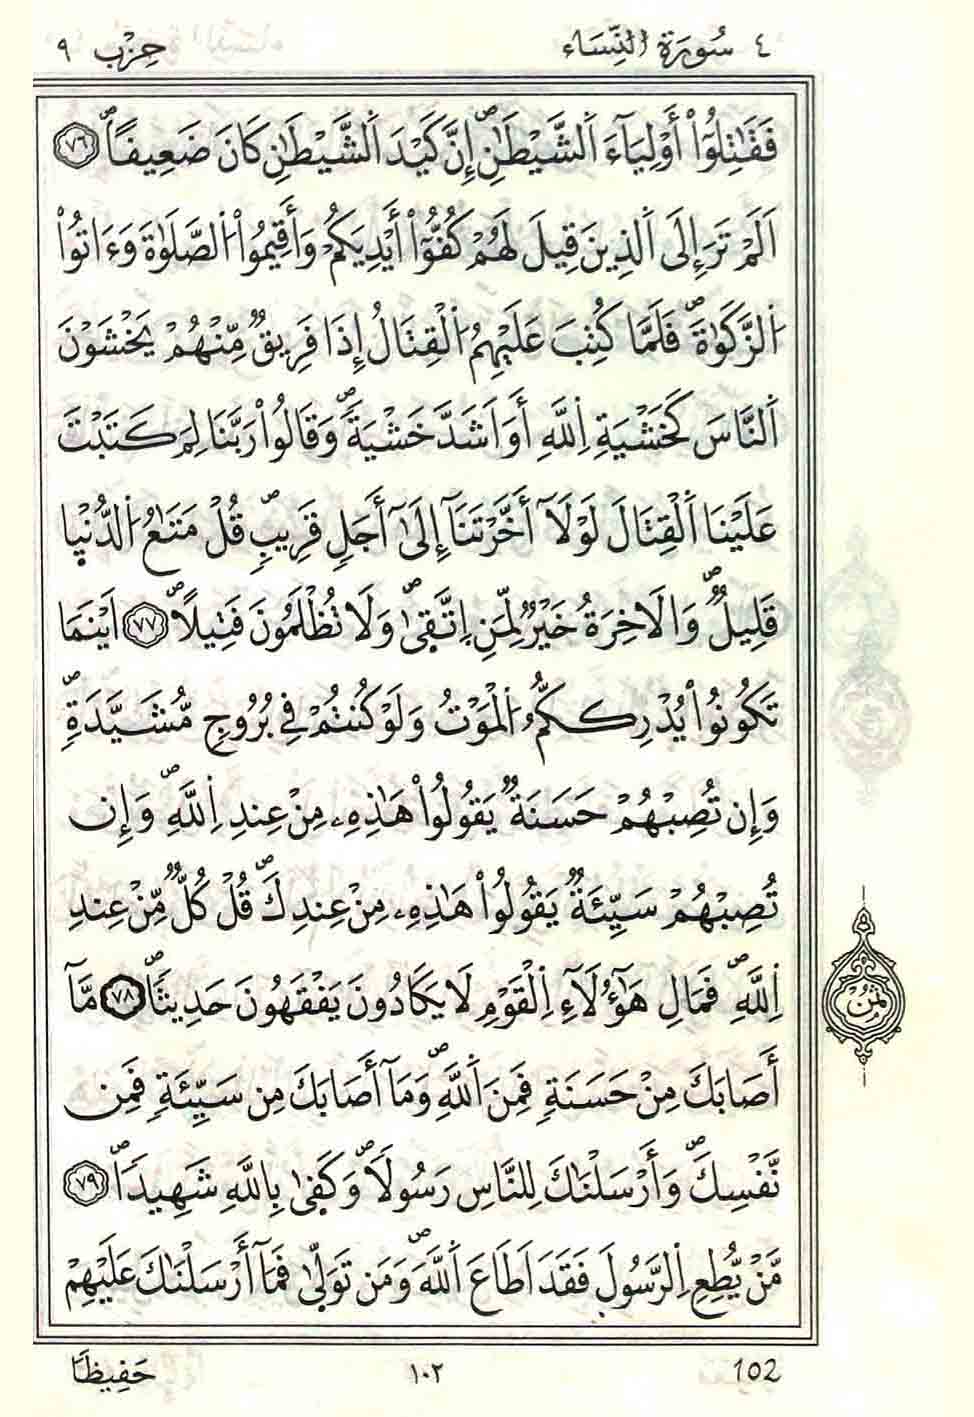 ٤ سُورَةُ النِّسَاء حِزْب ٩
فَقَٰتِلُوٓاْ أَوْلِيَآءَ اَلشَّيْطَٰنِۖ إِنَّ كَيْدَ اَلشَّيْطَٰنِ كَانَ ضَعِيفاًۖ ٧٦
اَلَمْ تَرَ إِلَى اَلذِينَ قِيلَ لَهُمْ كُفُّوٓاْ أَيْدِيَكُمْ وَأَقِيمُواْ اُلصَّلَوٰةَ وَءَاتُواْ
اُلزَّكَوٰةَۖ فَلَمَّا كُتِبَ عَلَيْهِمُ اُلْقِتَالُ إِذَا فَرِيقٌ مِّنْهُمْ يَخْشَوْنَ
اَلنَّاسَ كَخَشْيَةِ اِللَّهِ أَوَ اَشَدَّ خَشْيَةًۖ وَقَالُواْ رَبَّنَا لِمَ كَتَبْتَ
عَلَيْنَا اَلْقِتَالَ لَوْلَآ أَخَّرْتَنَآ إِلَىٰٓ أَجَلٖ قَرِيبٖۖ قُلْ مَتَٰعُ اُلدُّنْيٜا
قَلِيلٌۖ وَالَاخِرَةُ خَيْرٌ لِّمَنِ اِتَّق۪ىٰۖ وَلَا تُظْلَمُونَ فَتِيلاًۖ ٧٧ اَيْنَمَا
تَكُونُواْ يُدْرِككُّمُ اُلْمَوْتُ وَلَوْ كُنتُمْ فِي بُرُوجٖ مُّشَيَّدَةٖۖ
وَإِن تُصِبْهُمْ حَسَنَةٌ يَقُولُواْ هَٰذِهِۦ مِنْ عِندِ اِللَّهِۖ وَإِن
تُصِبْهُمْ سَيِّئَةٌ يَقُولُواْ هَٰذِهِۦ مِنْ عِندِكَۖ قُلْ كُلٌّ مِّنْ عِندِ
اِللَّهِۖ فَمَالِ هَٰٓؤُلَآءِ اِلْقَوْمِ لَا يَكَادُونَ يَفْقَهُونَ حَدِيثاًۖ ٧٨ مَّآ
ثُمُن
أَصَابَكَ مِنْ حَسَنَةٖ فَمِنَ اَللَّهِۖ وَمَآ أَصَابَكَ مِن سَيِّئَةٖ فَمِن
نَّفْسِكَۖ وَأَرْسَلْنَٰكَ لِلنَّاسِ رَسُولاًۖ وَكَف۪ىٰ بِاللَّهِ شَهِيداًۖ ٧٩
مَّنْ يُّطِعِ اِلرَّسُولَ فَقَدَ اَطَاعَ اَللَّهَۖ وَمَن تَوَلّ۪ىٰ فَمَآ أَرْسَلْنَٰكَ عَلَيْهِمْ
102 ١٠٢ حَفِيظاً